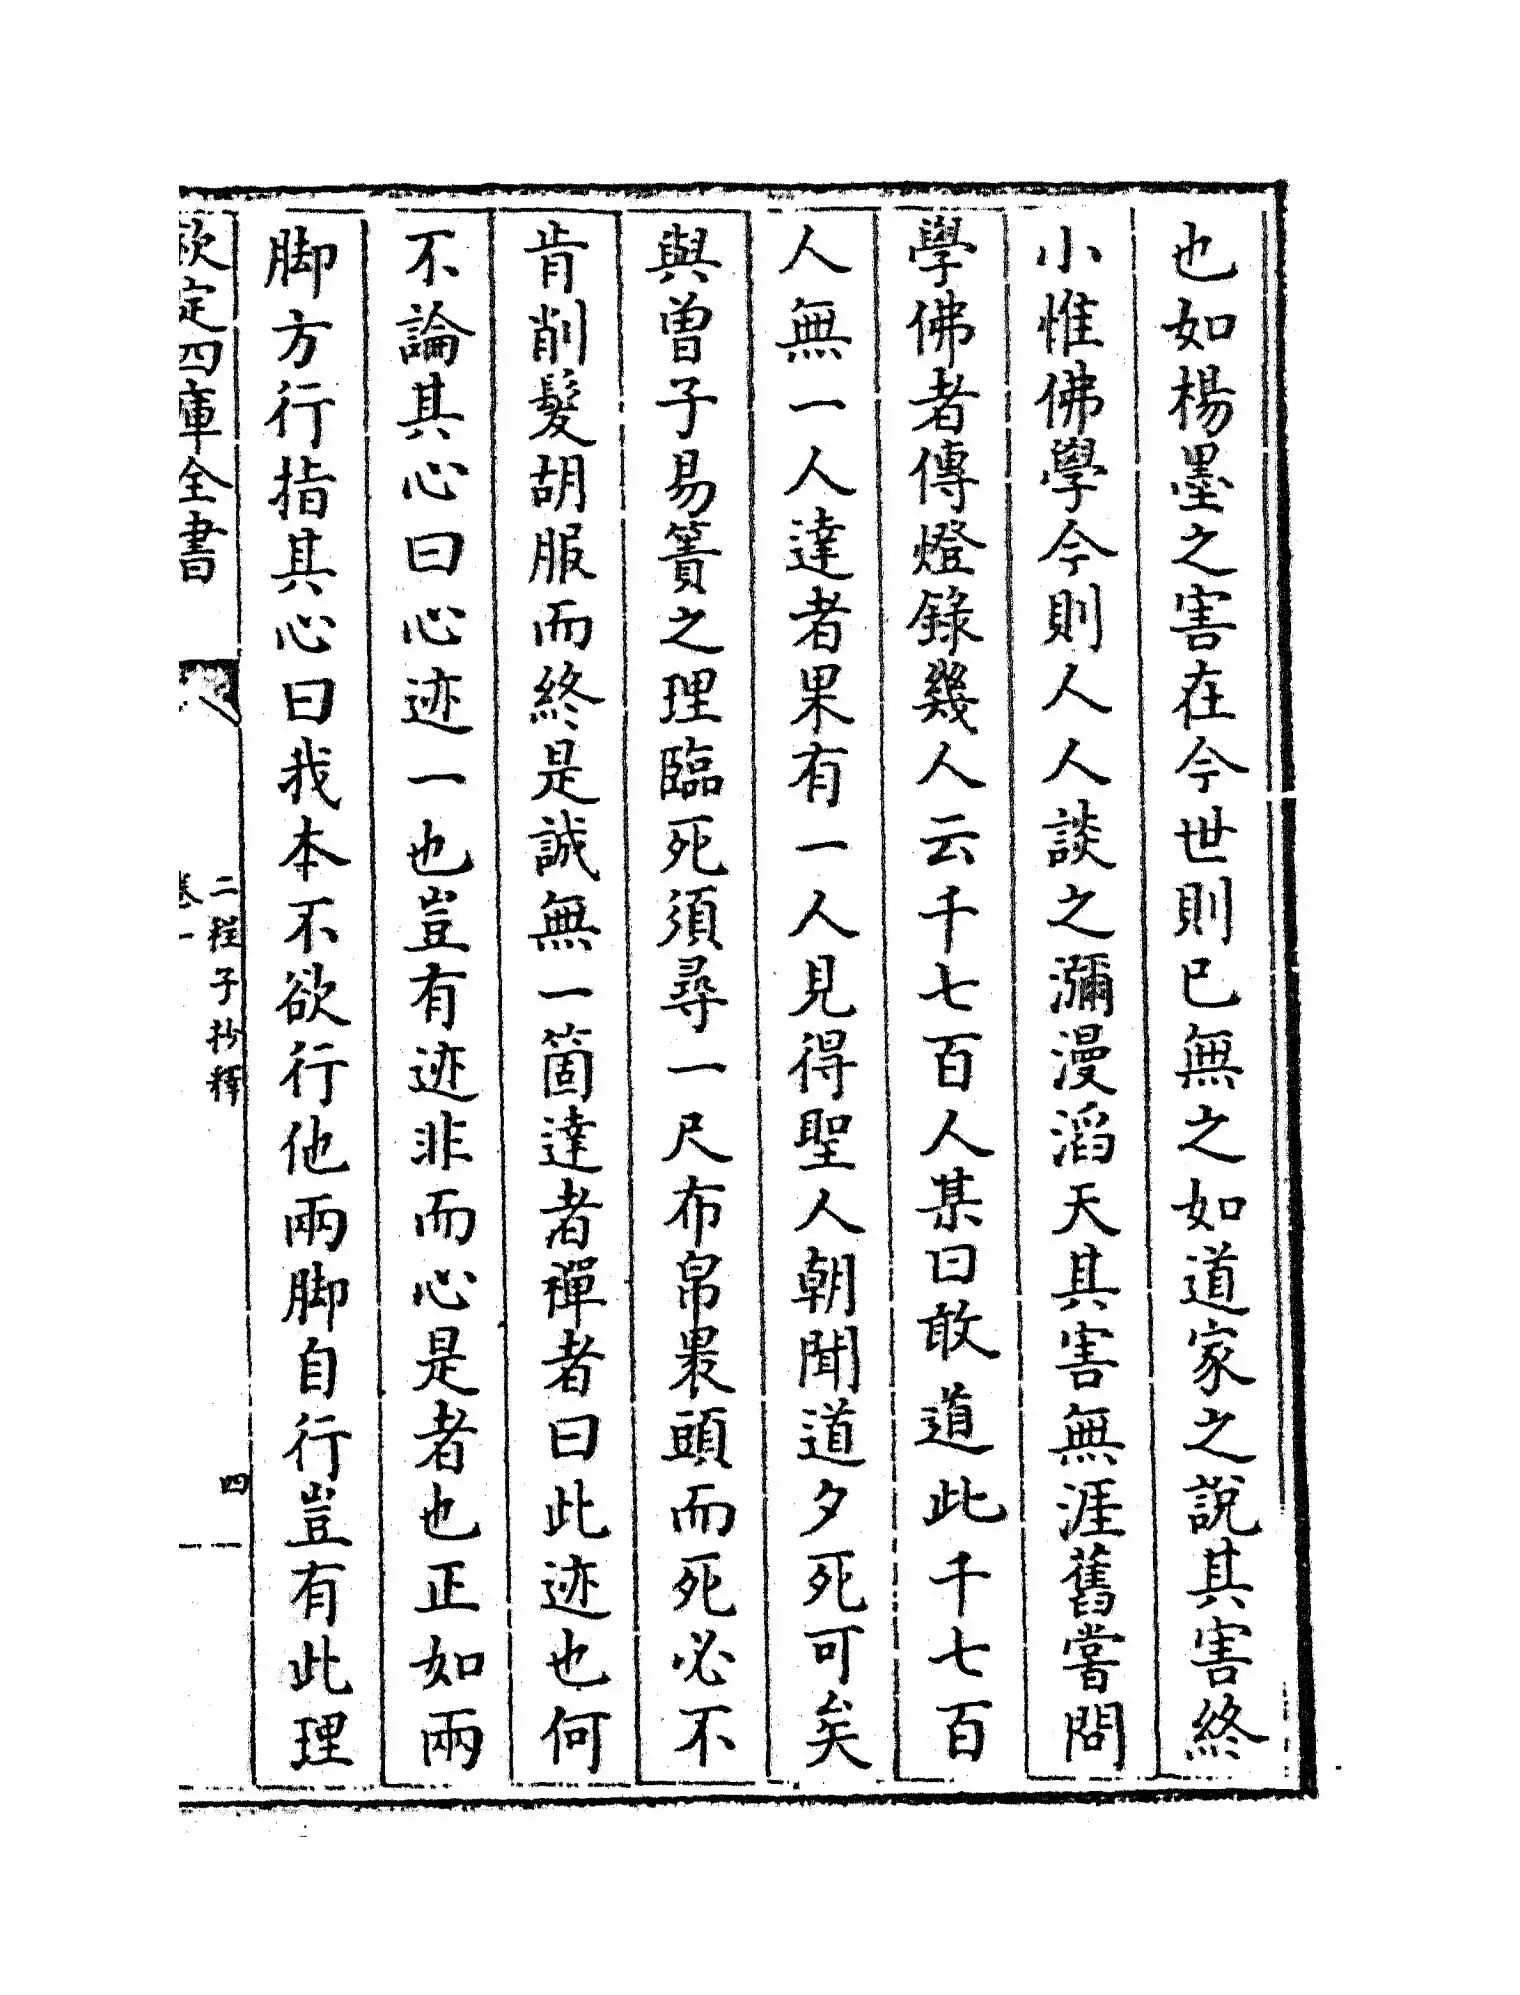 也如楊墨之害在今世則已無之如道家之說其害終
小惟佛學今則人人談之瀰漫滔天其害無涯舊嘗問
學佛者傳燈錄幾人云千七百人某曰敢道此千七百
人無一人達者果有一人見得聖人朝聞道夕死可矣
與曾子易簀之理臨死須尋一尺布帛裹頭而死必不
肯削髮胡服而終是誠無一箇達者禪者曰此迹也何
不論其心曰心迹一也豈有迹非而心是者也正如兩
脚方行指其心曰我本不欲行他兩脚自行豈有此理
欽定四庫全書
二程子抄釋
卷一
四